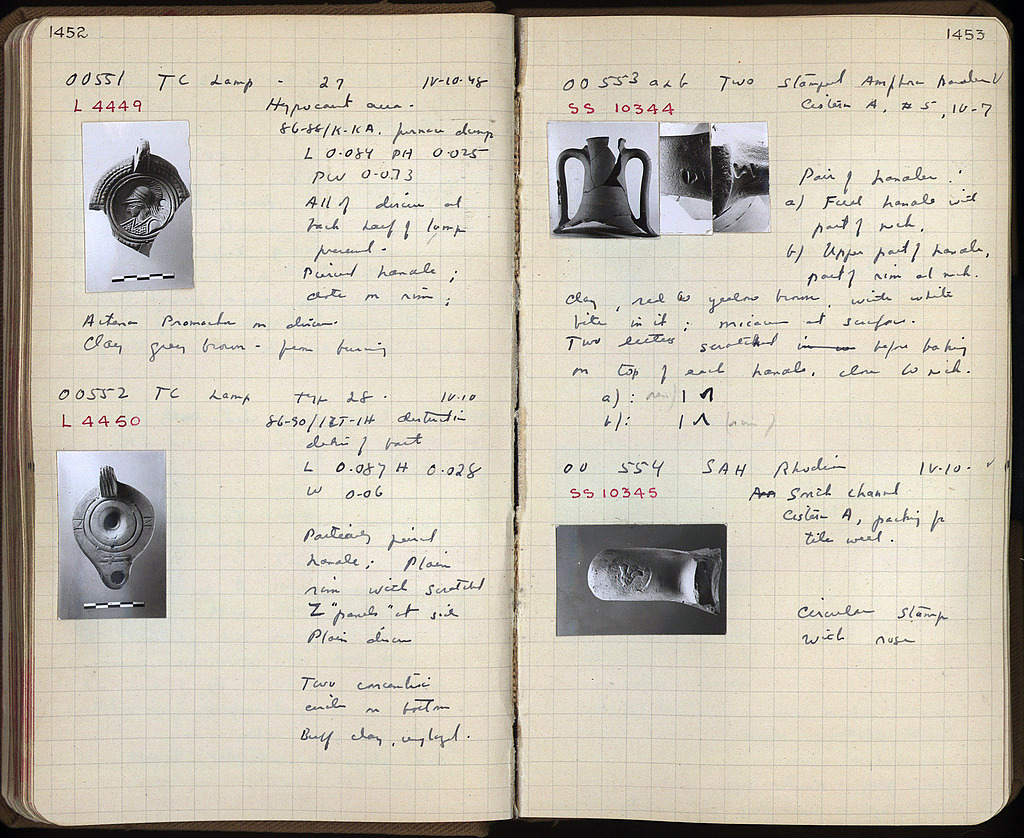 1452
OO551 TC Lamp - 27 IV-10-48
L 4449
Hypocaust area.
86-88/K-KA, furnace dump
L 0.084 PH 0.025
PW 0.073
All of discus and
back half of lamp
present.
Pierced handle;
dots on rim;
Athena Promachos on discus.
Clay grey brown - from burning
OO552 TC Lamp Type 28. IV-10
L 4450
destruction
debris of
L 0.087 H 0.028
W 0.06
Partially pierced
handle; Plain
rim with scratched
Z "panels" at side
Plain discus
Two concentric
circles on bottom
Buff clay, unglazed.
1453
OO 553 a & b Two Stamped Amphora handles √
SS 10344
Cistern A, #5, IV-7
Pair of handles:
a) Full handle with
part of neck.
b) Upper part of handle,
part of rim and neck.
Clay, red to yellow brown, with white
bits in it; micaceous at surface.
Two letters scratched before baking
on top of each handle, close to neck.
a):
b):
OO 554 SAH Rhodian IV-10- √
SS 10345
South channel
Cistern A, packing for
tile well.
Circular stamp
with rose